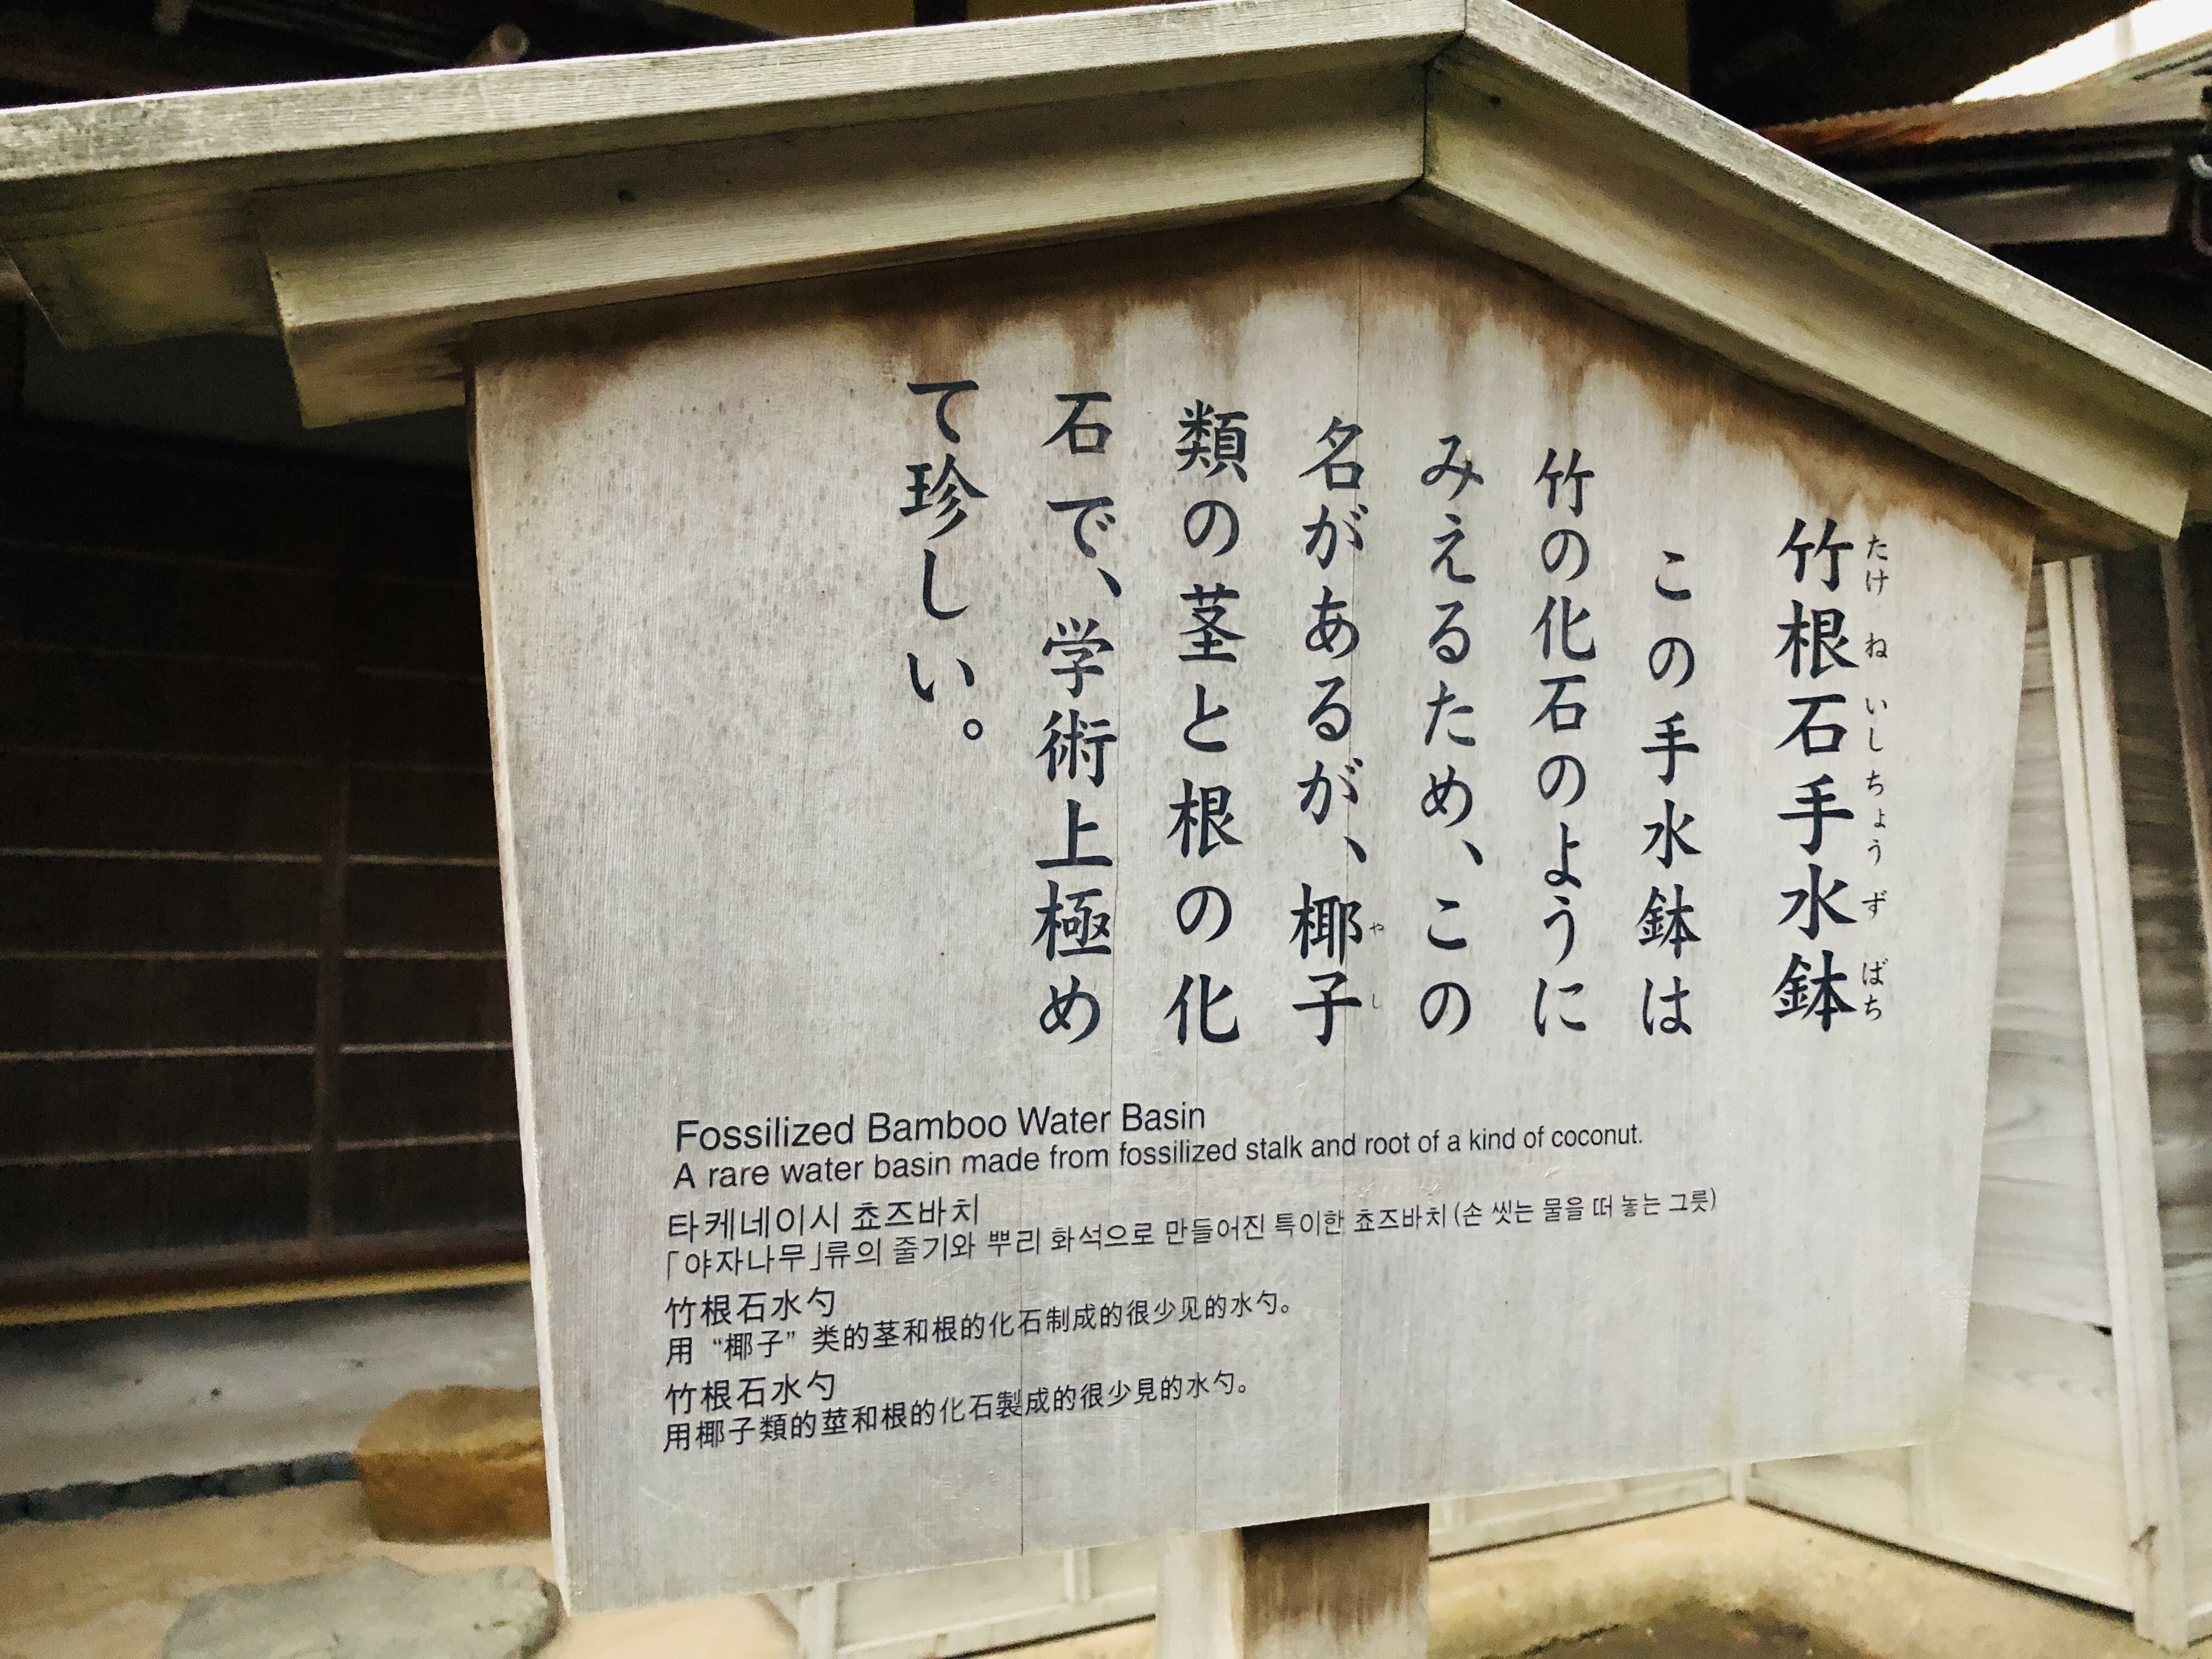 竹根石手水鉢
たけ ね いし ちょう ず ばち
この手水鉢は
竹の化石のように
みえるため、この
名があるが、椰子
や し
類の茎と根の化
石で、学術上極め
て珍しい。
Fossilized Bamboo Water Basin
A rare water basin made from fossilized stalk and root of a kind of coconut.
타케네이시 쵸즈바치
「야자나무」류의 줄기와 뿌리 화석으로 만들어진 특이한 쵸즈바치 (손 씻는 물을 떠 놓는 그릇)
竹根石水勺
用“椰子”类的茎和根的化石制成的很少见的水勺。
竹根石水勺
用椰子類的莖和根的化石製成的很少見的水勺。